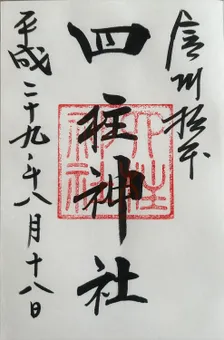 信州松本
四柱神社
平成二十九年八月十八日